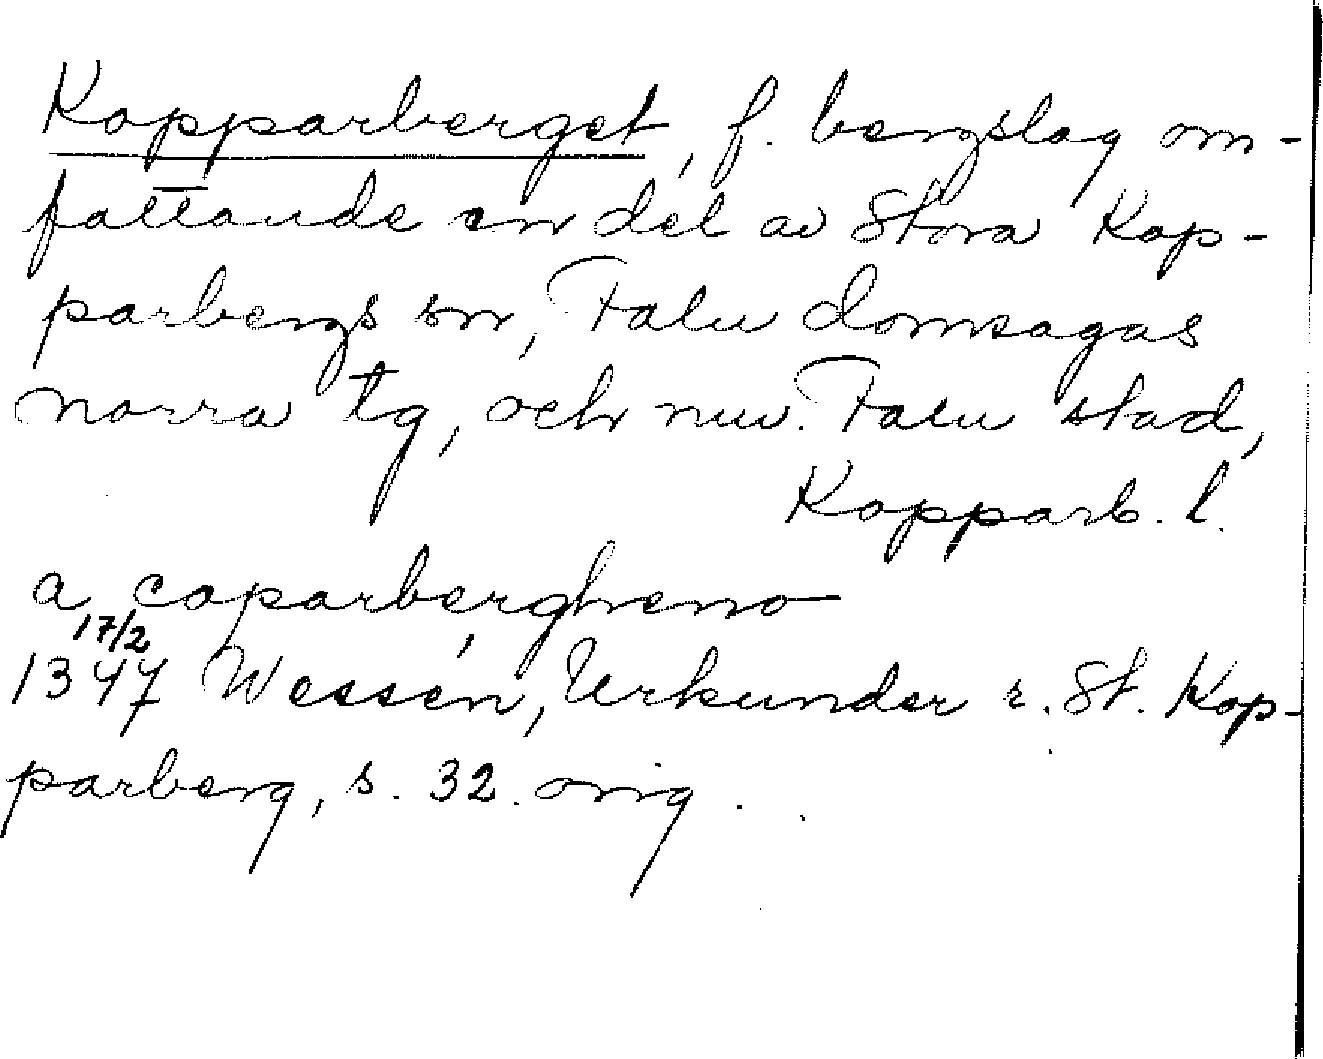 Kopparberget, f. bergslag om-
fattande en del av Stora Kop-
parbergs sn, Falu domsagas
norra tg, och nuv. Falu stad,
Kopparb. l.
a coparbergheno
17/2
1347 Wessén, Urkunder r. St. Kop-
parberg, s. 32. orig.